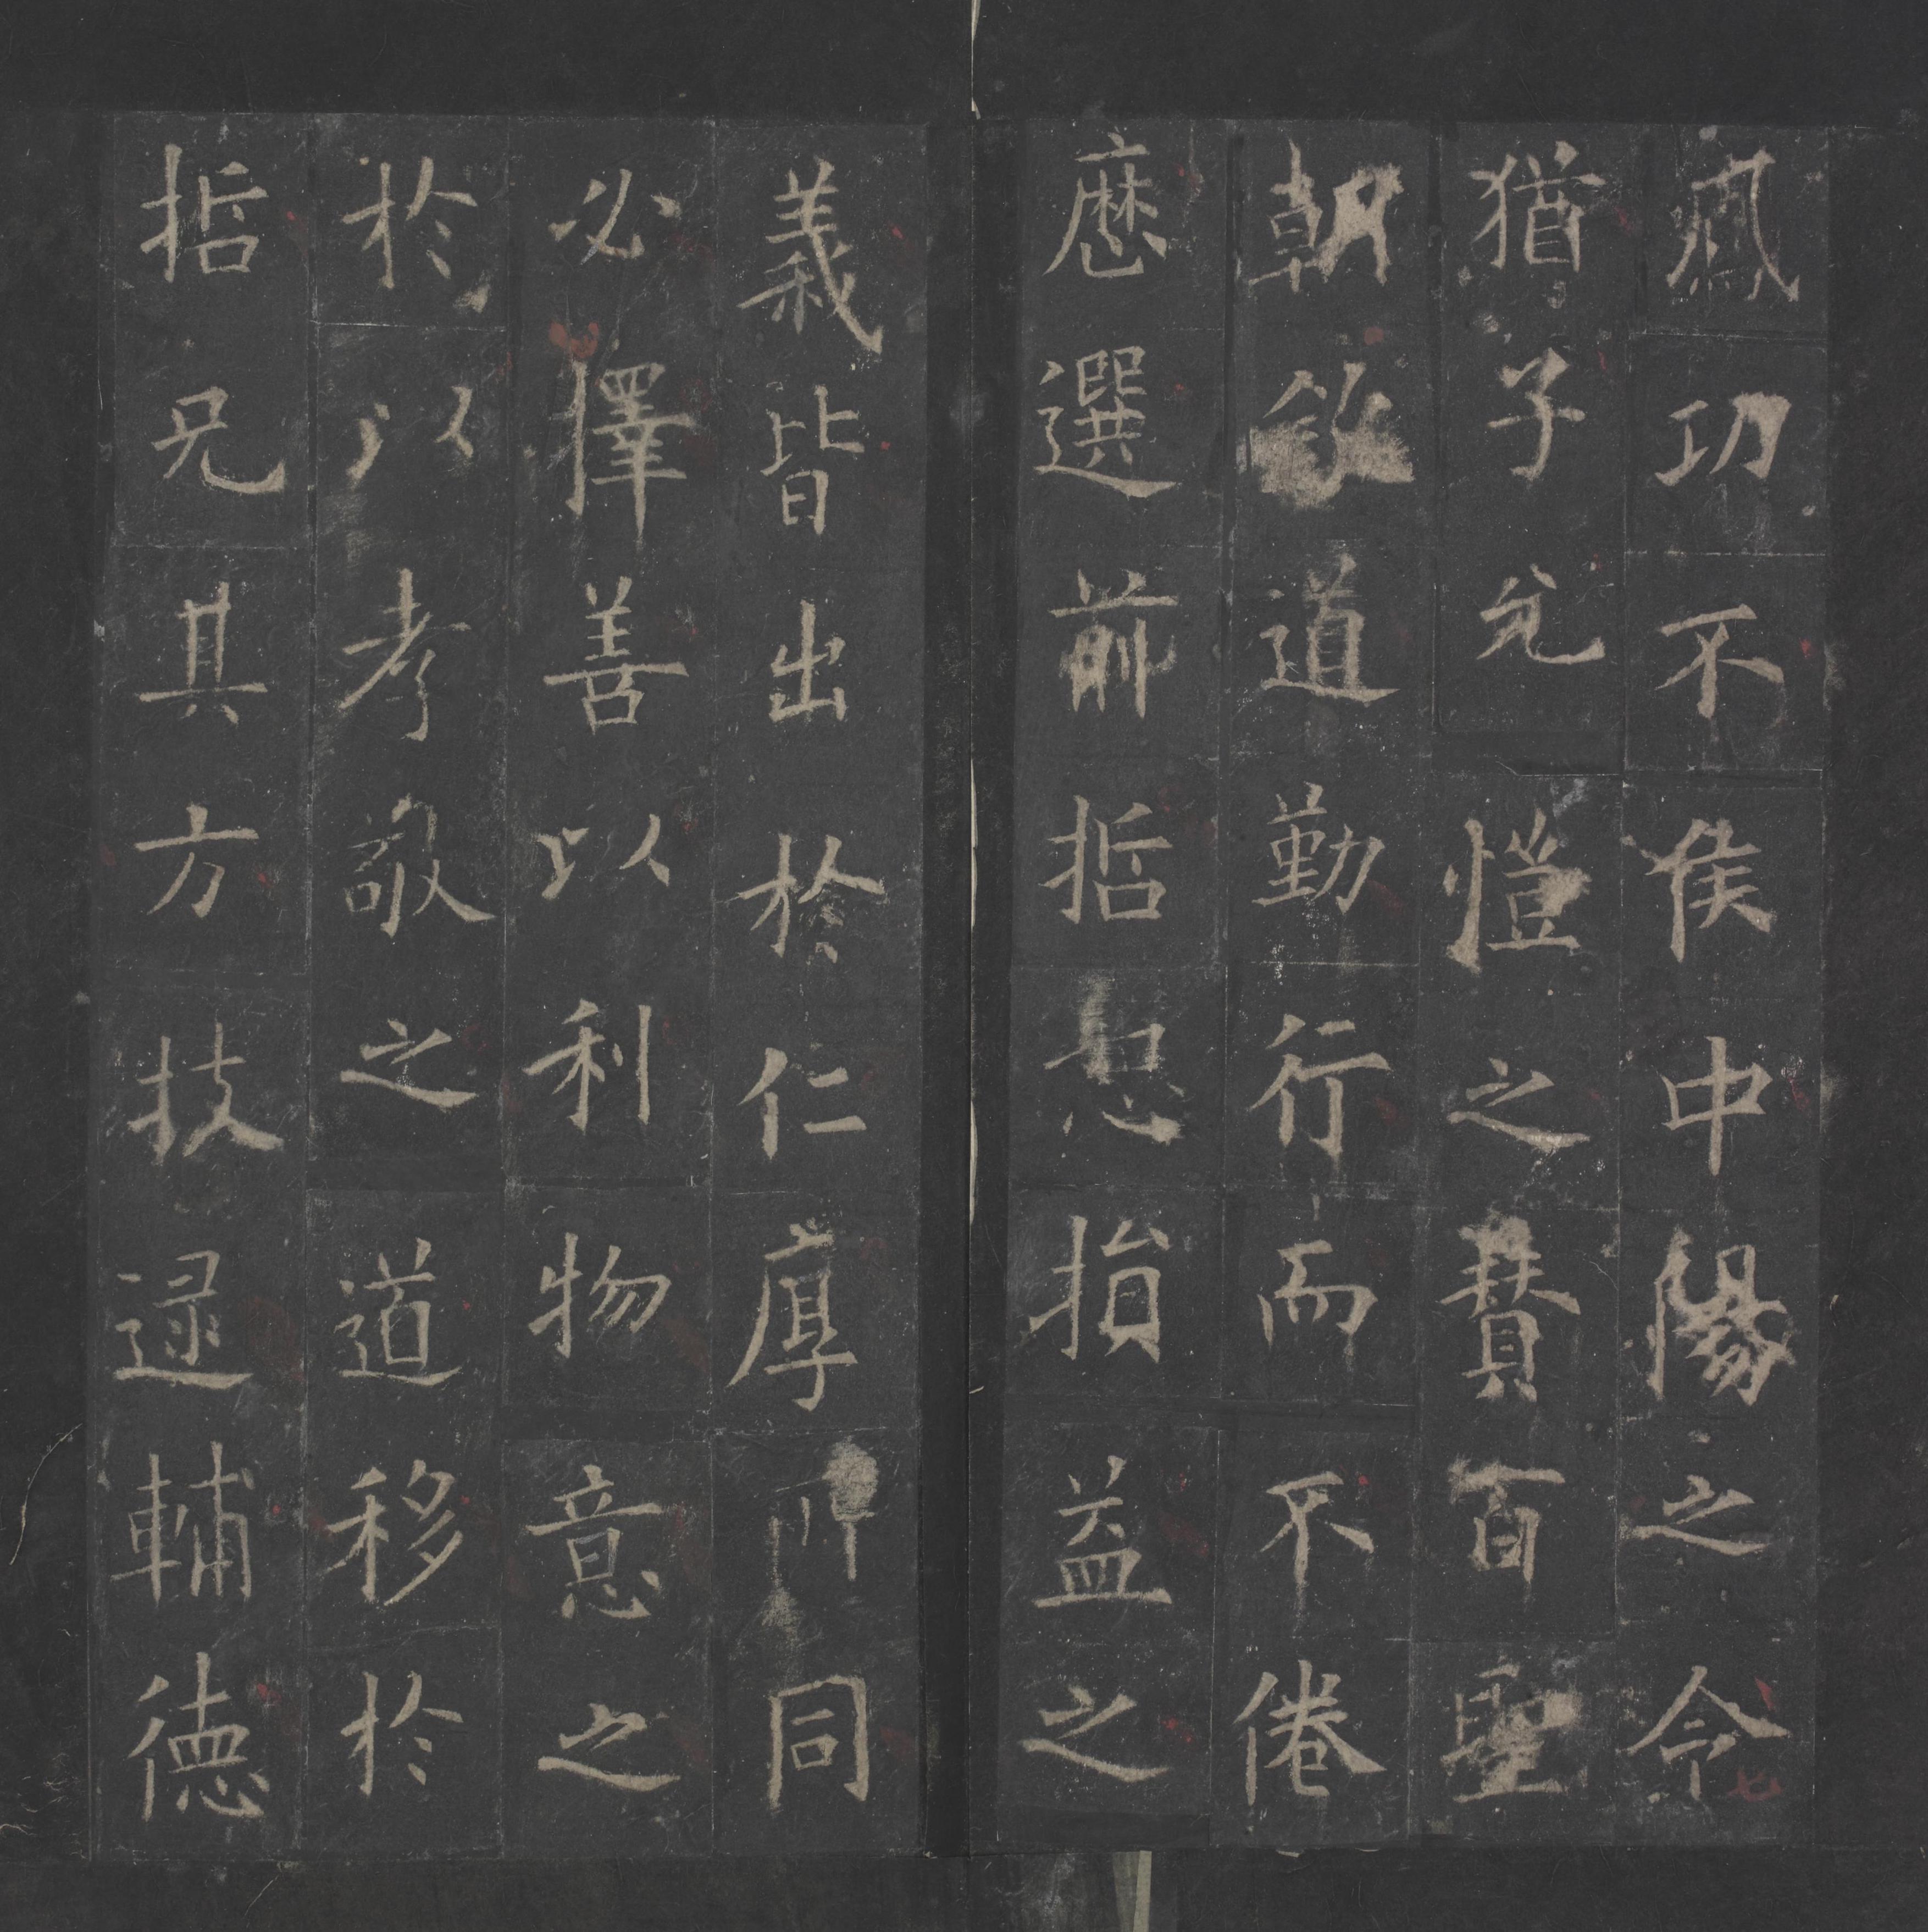 鳳功不侯中陽之令
猶子允愷之賛百聖
朝道勤行而不倦
歷選前哲損益之
義皆出於仁厚同
必擇善以利物意之
於以孝敬之道移於
哲兄其方技逯輔德